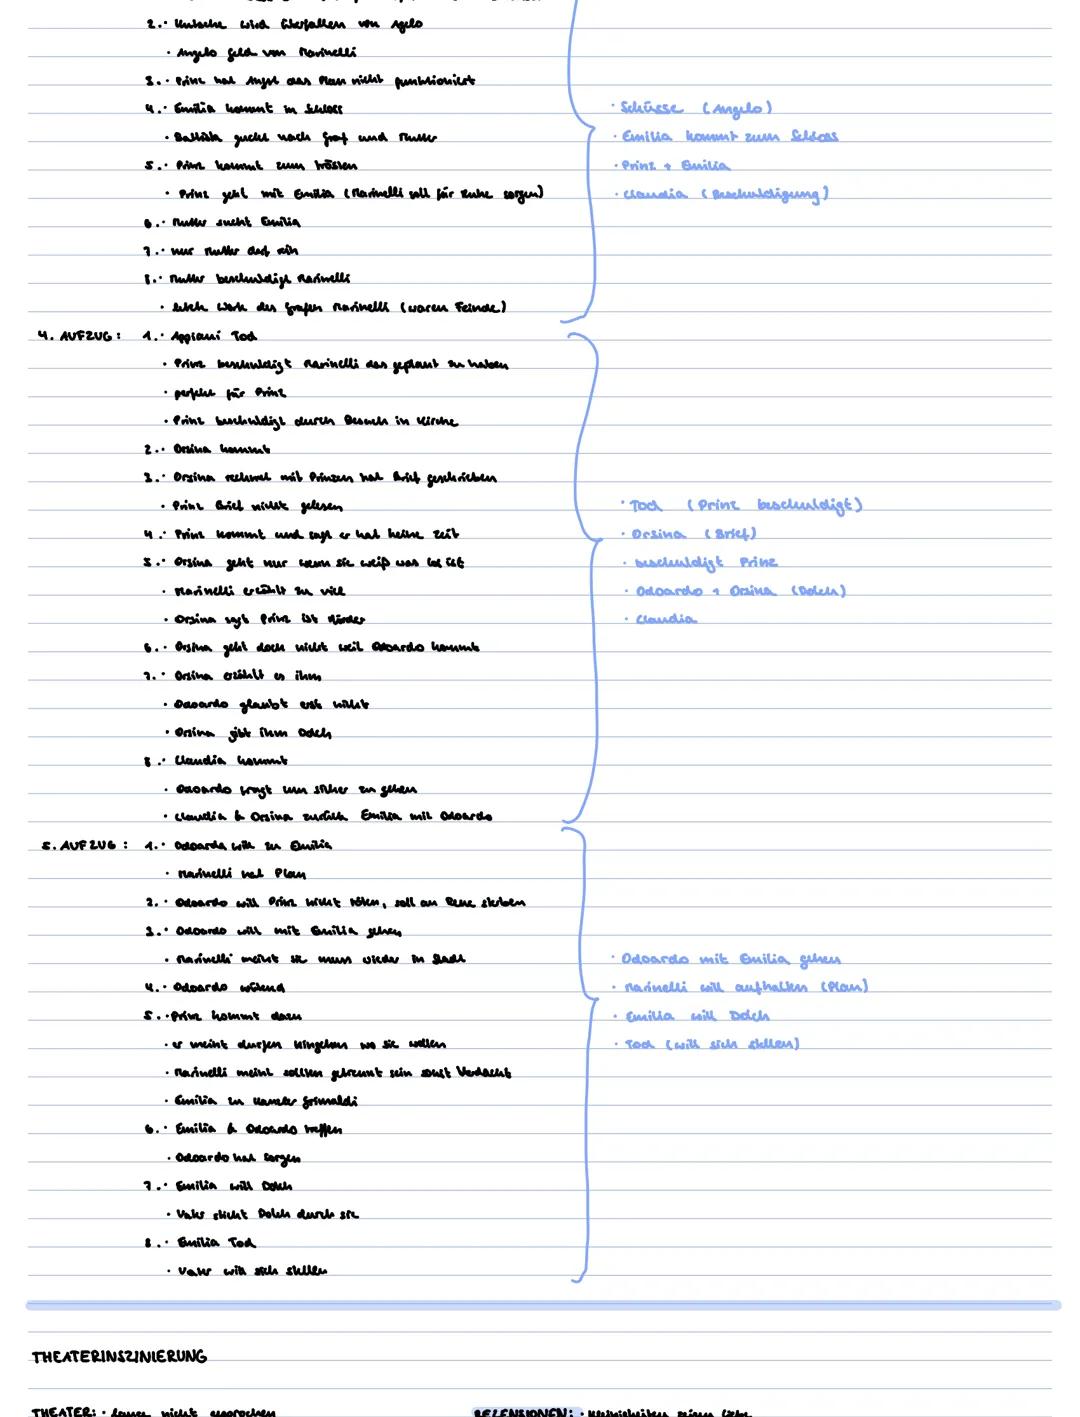 2.· Kutsche wird überfallen von Agelo
· Angelo Geld von Marinelli
3.· Prinz hat Angst das Plan nicht funktioniert
4.· Emilia kommt in Schloss
· Battista guckt nach Graf und Mutter
5.· Prinz kommt zum trösten
· Prinz geht mit Emilia (Marinelli soll für Ruhe sorgen)
6.· Mutter sucht Emilia
7.· nur Mutter darf rein
8.· Mutter beschuldigt Marinelli
· letzte Wort des Grafen Marinelli (waren Feinde)
· Schüsse (Angelo)
· Emilia kommt zum Schloss
· Prinz + Emilia
· Claudia (Beschuldigung)
4. AUFZUG: 1.· Appiani Tod
· Prinz beschuldigt Marinelli das geplant zu haben
· perfekt für Prinz
· Prinz beschuldigt durch Besuch in Kirche
2.· Orsina kommt
3.· Orsina rechnet mit Prinzen hat Brief geschrieben
· Prinz Brief nicht gelesen
4.· Prinz kommt und sagt er hat keine Zeit
5.· Orsina geht nur wenn sie weiß was los ist
· Marinelli erzählt zu viel
· Orsina sagt Prinz ist Mörder
6.· Orsina geht doch nicht weil Odoardo kommt
7.· Orsina erzählt es ihm
· Odoardo glaubt erst nicht
· Orsina gibt ihm Dolch
8.· Claudia kommt
· Odoardo fragt um sicher zu gehen
· Claudia & Orsina zurück Emilia mit Odoardo
· Tod (Prinz beschuldigt)
· Orsina (Brief)
· beschuldigt Prinz
· Odoardo + Orsina (Dolch)
· Claudia
5. AUFZUG: 1.· Odoardo will zu Emilia
· Marinelli hat Plan
2.· Odoardo will Prinz nicht töten, soll an Reue sterben
3.· Odoardo will mit Emilia gehen
· Marinelli meint sie muss wieder in Stadt
4.· Odoardo wütend
5.· Prinz kommt dazu
· er meint dürfen hingehen wo sie wollen
· Marinelli meint sollten getrennt sein sonst Verdacht
· Emilia zu Kanzler Grimaldi
6.· Emilia & Odoardo treffen
· Odoardo hat Sorgen
7.· Emilia will Dolch
· Vater sticht Dolch durch sie
8.· Emilia Tod
· Vater will sich stellen
· Odoardo mit Emilia gehen
· Marinelli will aufhalten (Plan)
· Emilia will Dolch
· Tod (will sich stellen)
THEATERINSZINIERUNG
THEATER: · nicht
REZENSIONEN: ·